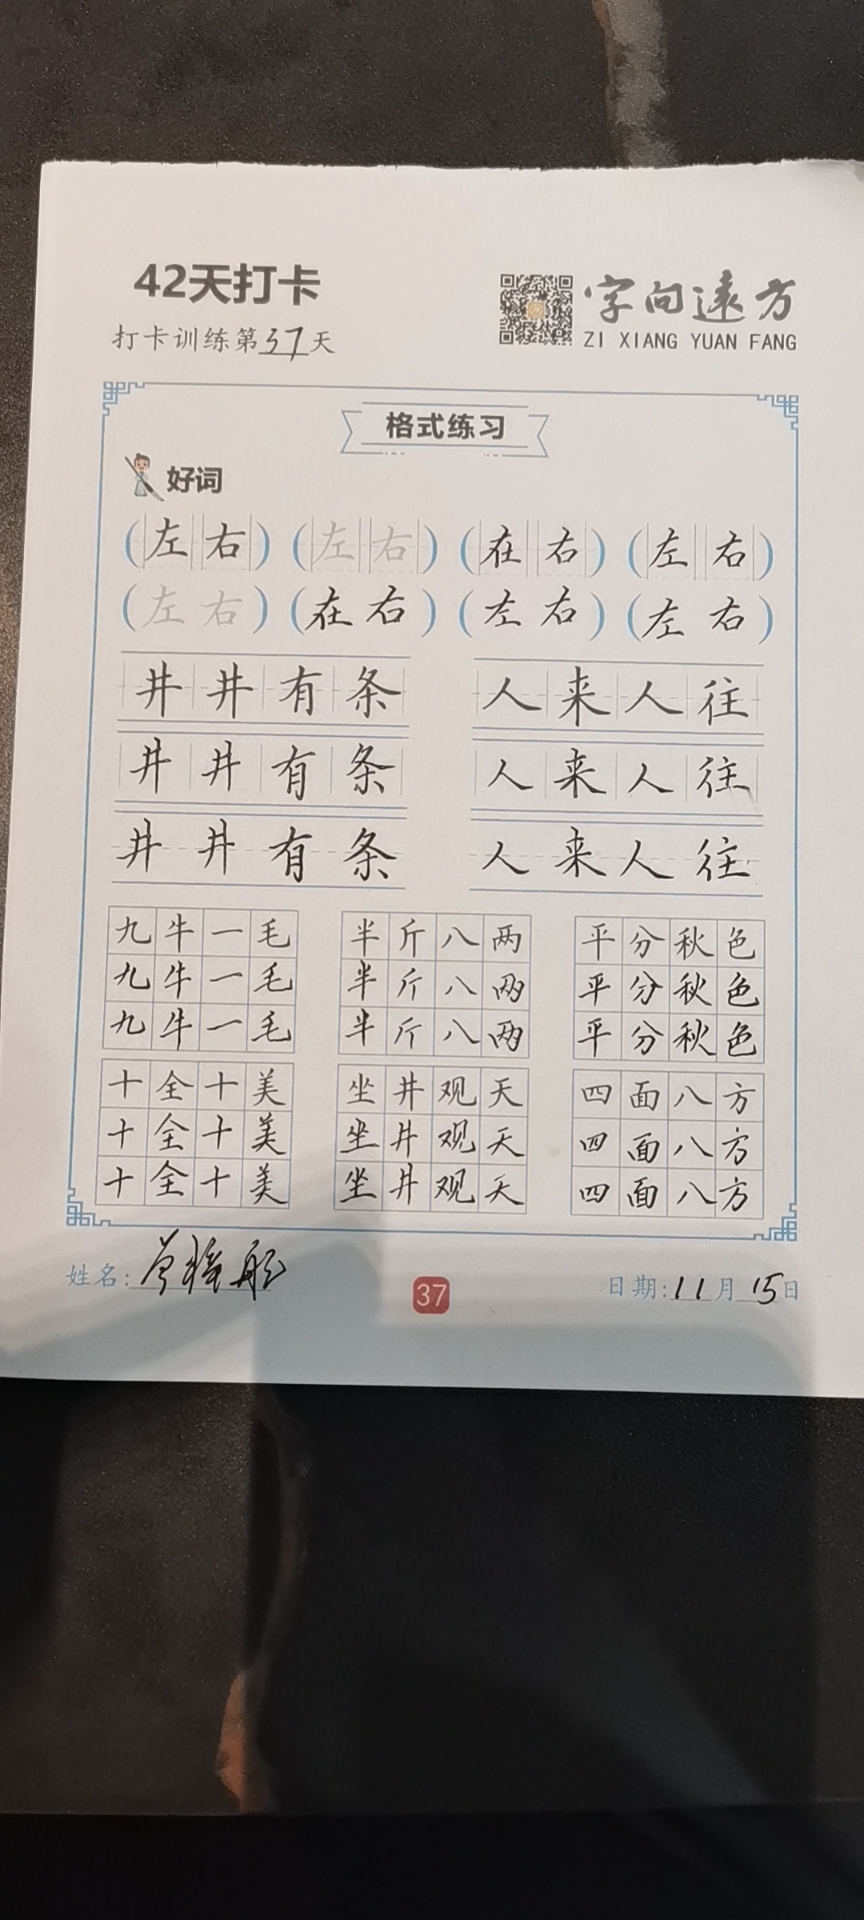 42天打卡
字向远方
打卡训练第37天
ZI XIANG YUAN FANG
格式练习
好词
(左右) (左右) (在右) (左右)
(左右) (在右) (左右) (左右)
井井有条 人来人往
井井有条 人来人往
井井有条 人来人往
九牛一毛 半斤八两 平分秋色
九牛一毛 半斤八两 平分秋色
九牛一毛 半斤八两 平分秋色
十全十美 坐井观天 四面八方
十全十美 坐井观天 四面八方
十全十美 坐井观天 四面八方
姓名: 37 日期:11月15日